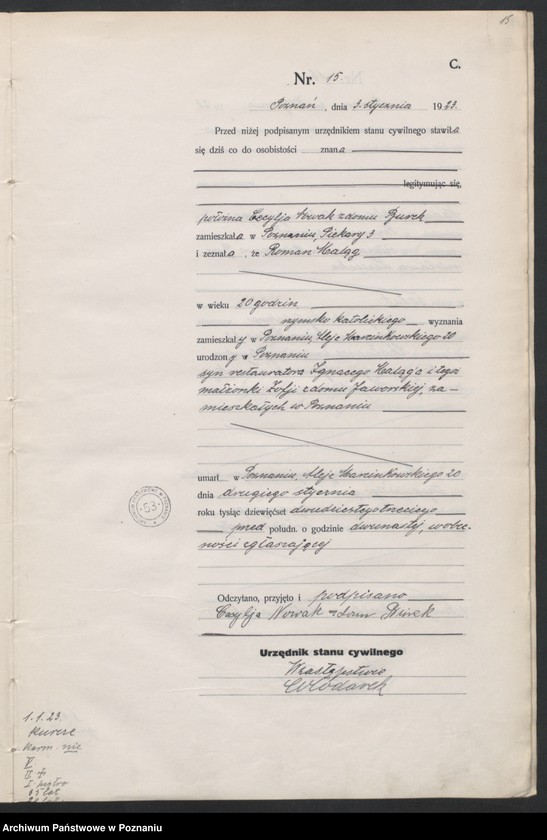 15
C.
Nr. 15
Poznań, dnia 3. stycznia 1923.
Przed niżej podpisanym urzędnikiem stanu cywilnego stawiła
się dziś co do osobistości znana
legitymując się,
położna Cecylja Nowak z domu Burek
zamieszkała w Poznaniu, Piekary 3
i zeznała, że Roman Maląg
w wieku 20 godzin
rzymsko katolickiego wyznania
zamieszkały w Poznaniu, Aleje Marcinkowskiego 20
urodzony w Poznaniu
syn restauratora Ignacego Maląga i tegoż
małżonki Zofji z domu Jaworskiej, za-
mieszkałych w Poznaniu
umarł w Poznaniu, Aleje Marcinkowskiego 20
dnia drugiego stycznia
roku tysiąc dziewięćset dwudziestegotrzeciego
przed połudn. o godzinie dwunastej, w obec-
ności zgłaszającej
Odczytano, przyjęto i podpisano
Cecylja Nowak z dom Burek
Urzędnik stanu cywilnego
W zastępstwie
Włodarek
53
1.1.23.
Kurcze
Karm. nie
V
II +
I piętro
Archiwum Państwowe w Poznaniu